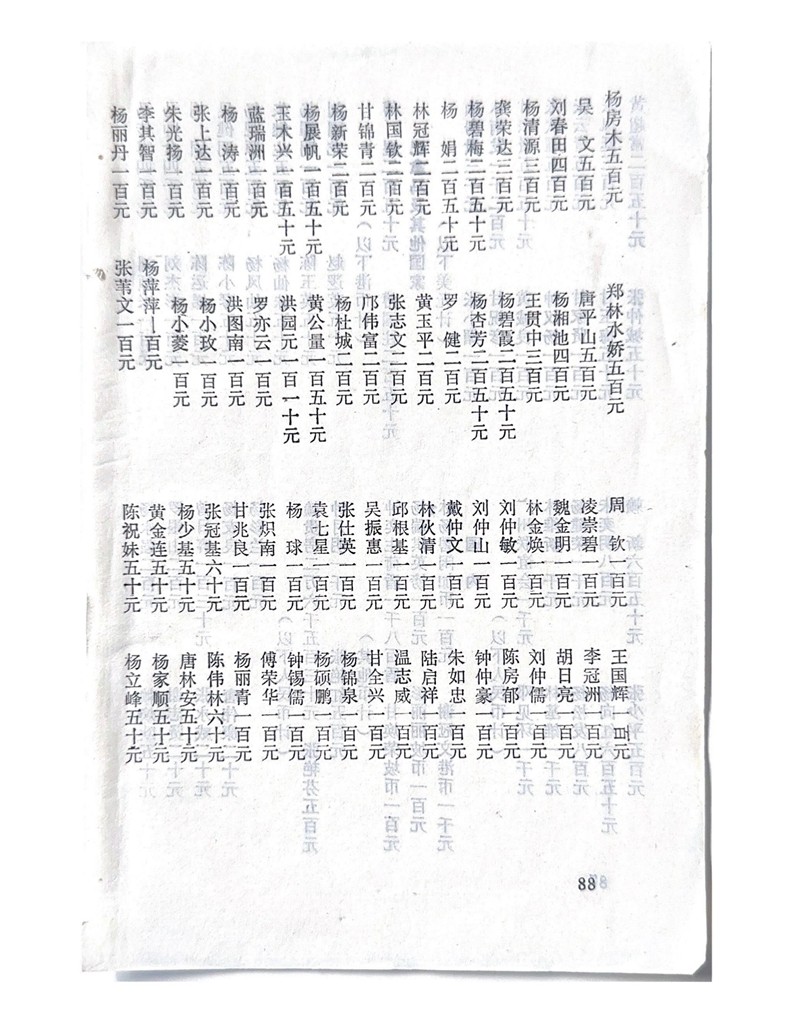 杨房木五百元
吴 文五百元
刘春田四百元
杨清源三百元
龚荣达三百元
杨碧梅二百五十元
杨 娟二百五十元
林冠辉二百元
林国钦二百元
甘锦青二百元
杨新荣二百元
杨展帆一百五十元
王木兴一百五十元
蓝瑞洲一百元
杨 涛一百元
张上达一百元
朱光扬一百元
李其智一百元
杨丽丹一百元
郑林水娇五百元
唐平山五百元
杨湘池四百元
王贯中三百元
杨碧霞二百五十元
杨杏芳二百五十元
罗 健二百元
黄玉平二百元
张志文二百元
邝伟富二百元
杨杜城二百元
黄公量一百五十元
洪园元一百一十元
罗亦云一百元
洪图南一百元
杨小玫一百元
杨小菱一百元
杨萍萍一百元
张苇文一百元
周 钦一百元
凌崇碧一百元
魏金明一百元
林金焕一百元
刘仲敏一百元
刘仲山一百元
戴仲文一百元
林伙清一百元
邱根基一百元
吴振惠一百元
张仕英一百元
袁七星一百元
杨 球一百元
张炽南一百元
甘兆良一百元
张冠基六十元
杨少基五十元
黄金连五十元
陈祝妹五十元
王国辉一百元
李冠洲一百元
胡日亮一百元
刘仲儒一百元
陈房郁一百元
钟仲豪一百元
朱如忠一百元
陆启祥一百元
温志威一百元
甘全兴一百元
杨锦泉一百元
杨硕鹏一百元
钟锡儒一百元
傅荣华一百元
杨丽青一百元
陈伟林六十元
唐林安五十元
杨家顺五十元
杨立峰五十元
88